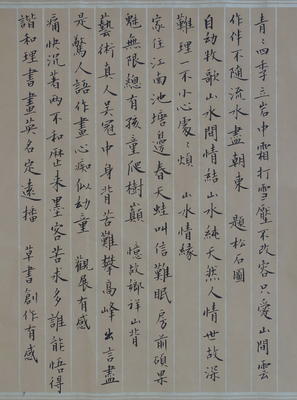 青青四季立岩中霜打雪壓不改容只愛山間雲
作伴不隨流水盡朝東 題松石圖
自幼牧歌山水間情結山水純天然人情世故深
難理一不小心處處煩 山水情緣
家住江南池塘邊春天蛙叫信難眠房前碩果
魅無限總有孩童爬樹巔 憶故鄉祥山背
藝術真人吳冠中身背苦難攀高峰出言盡
是驚人語作畫心痴似幼童 觀展有感
痛快沉著兩不和麻止未墨客苦求多誰能悟得
諧和理書畫英名定遠播 草書創作有感